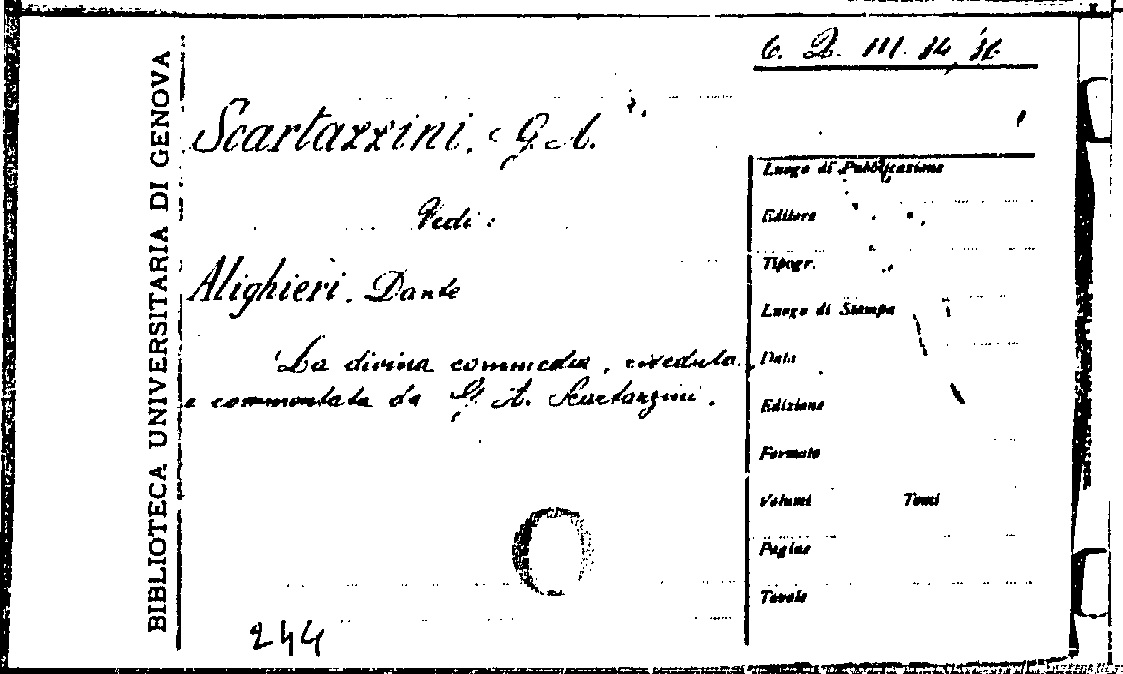 BIBLIOTECA UNIVERSITARIA DI GENOVA
6. Q. III.
Scartazzini. G. A.
Vedi:
Alighieri. Dante
La divina commedia, riveduta
e commentata da G. A. Scartazzini.
244
Luogo di Pubblicazione
Editore
Tipogr.
Luogo di Stampa
Data
Edizione
Formato
Volumi Tomi
Pagine
Tavole